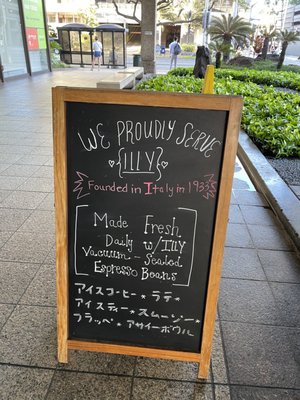 WE PROUDLY SERVE
{ILLY}
Founded in Italy in 1933
Made Fresh
Daily w/ILLY
Vacuum-Sealed
Espresso Beans
アイスコーヒー * ラテ *
アイスティー * スムージー *
フラッペ * アサイーボウル